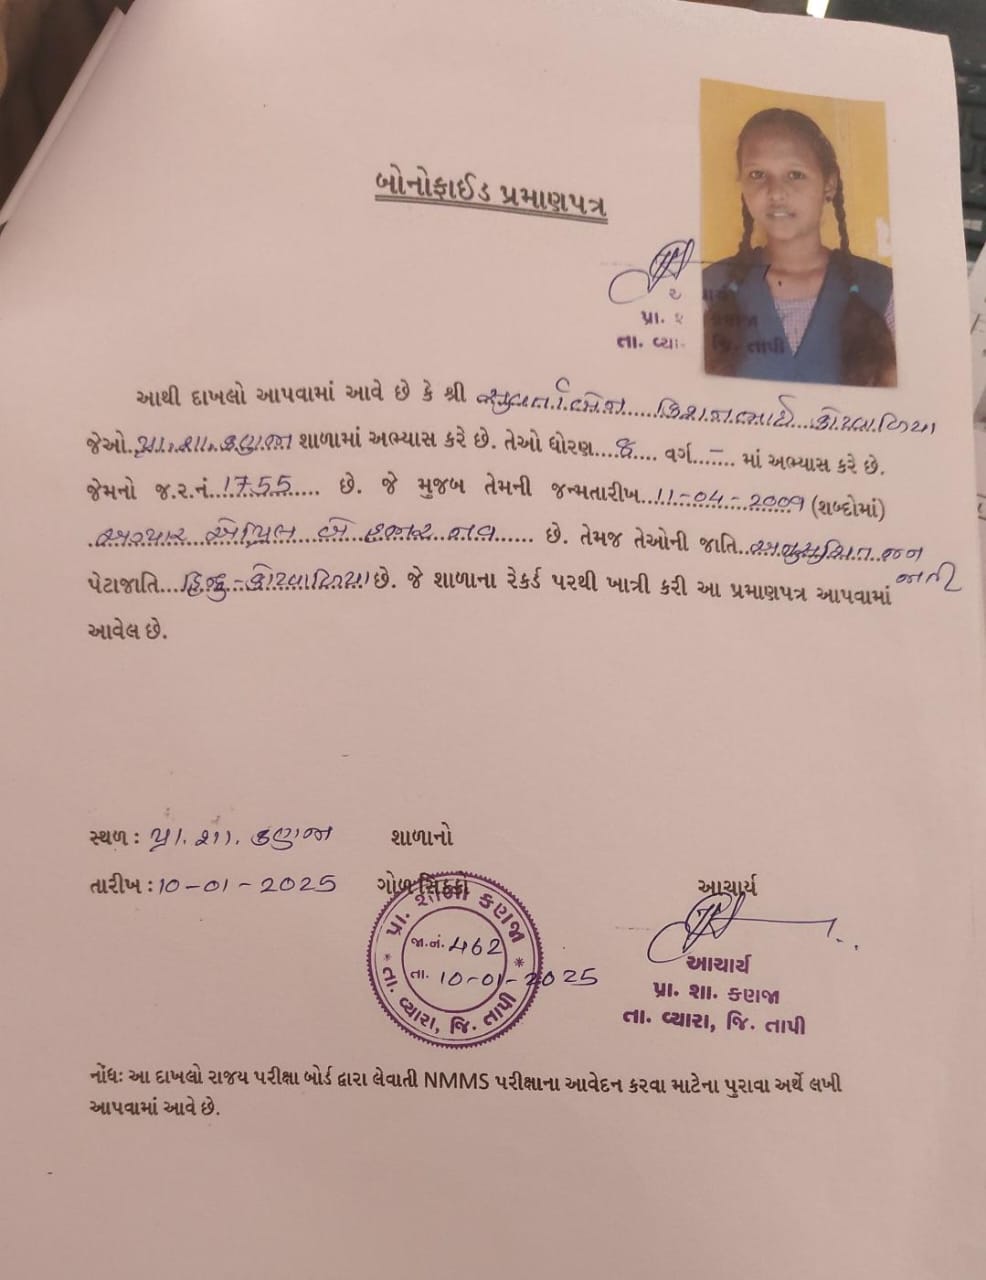 બોનોફાઈડ પ્રમાણપત્ર
પ્રા.
તા. વ્યા. જિ. તાપી
આથી દાખલો આપવામાં આવે છે કે શ્રી
જેઓ.પ્રા.શા.કણજા શાળામાં અભ્યાસ કરે છે. તેઓ ધોરણ....૮.... વર્ગ..–..... માં અભ્યાસ કરે છે.
જેમનો જ.ર.નં.1755..... છે. જે મુજબ તેમની જન્મતારીખ...11-04-2009 (શબ્દોમાં)
અગ્યાર એપ્રિલ બે હજાર નવ...... છે. તેમજ તેઓની જાતિ..અનુસુચિત જન
જાતી
પેટાજાતિ...હિન્દુ- છે. જે શાળાના રેકર્ડ પરથી ખાત્રી કરી આ પ્રમાણપત્ર આપવામાં
આવેલ છે.
સ્થળ : પ્રા. શા. કણજા શાળાનો
તારીખ : 10-01-2025 ગોળ સિક્કો આચાર્ય
પ્રા. શાળા કણજા
જા.નં. 462
તા. 10-01-2025
તા. વ્યારા, જિ. તાપી
આચાર્ય
પ્રા. શા. કણજા
તા. વ્યારા, જિ. તાપી
નોંધઃ આ દાખલો રાજ્ય પરીક્ષા બોર્ડ દ્વારા લેવાતી NMMS પરીક્ષાના આવેદન કરવા માટેના પુરાવા અર્થે લખી
આપવામાં આવે છે.